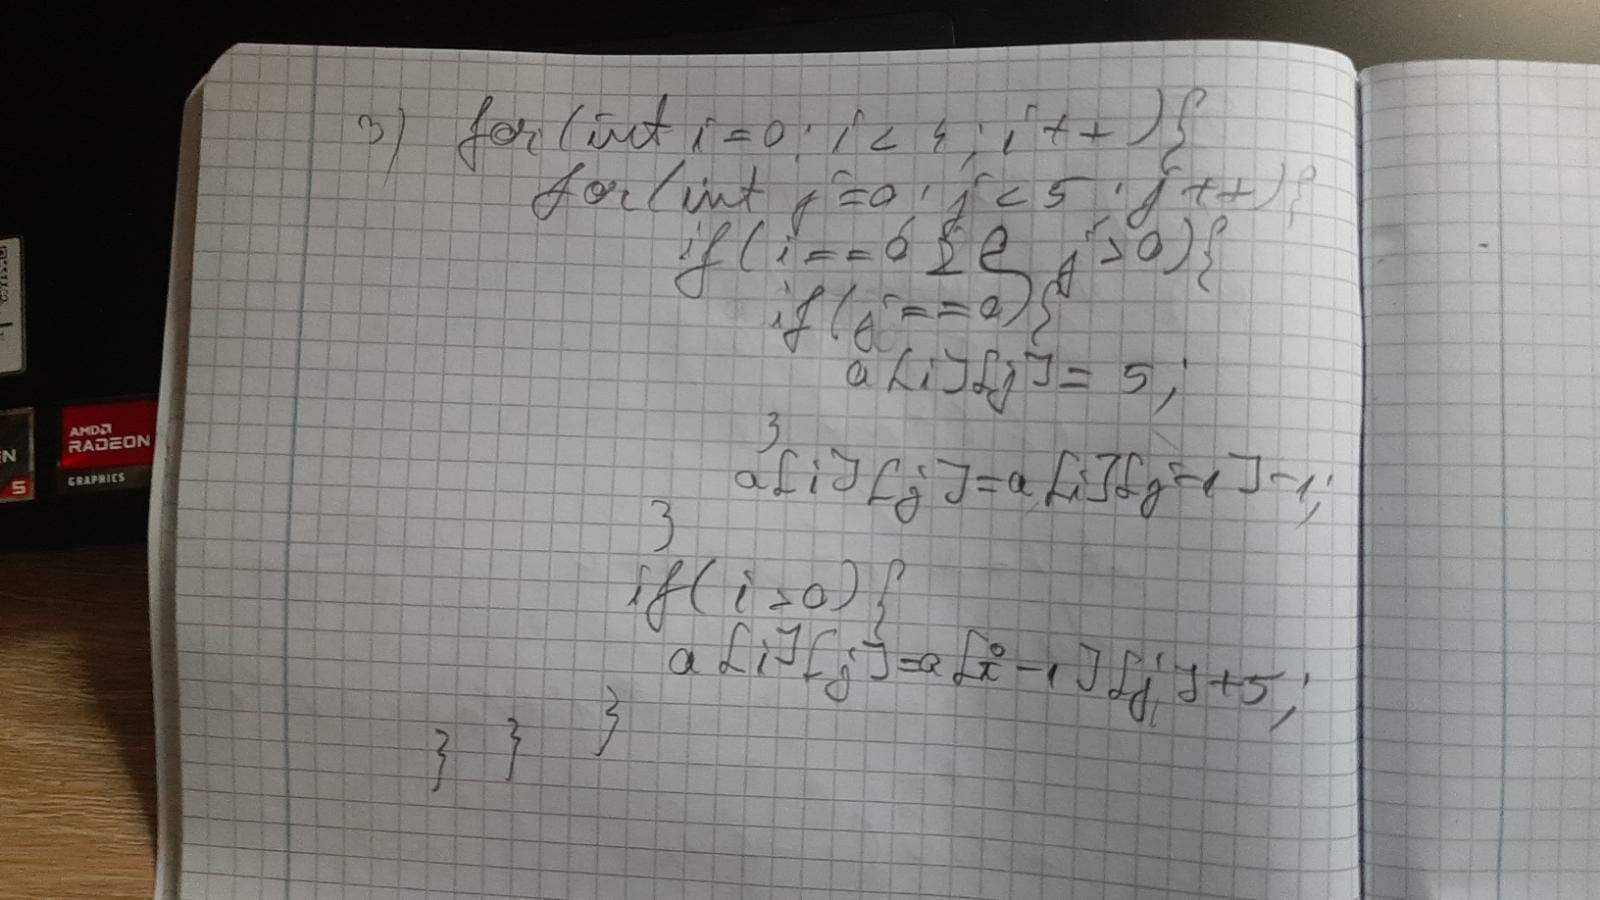 3) for(int i=0; i<4; i++){
for(int j=0; j<5; j++){
if(i==0 && j>0){
if(j==0){
a[i][j]= 5;
}
a[i][j]=a[i][j-1]-1;
}
if(i>0){
a[i][j]=a[i-1][j]+5;
} } }
AMD
RADEON
GRAPHICS
5